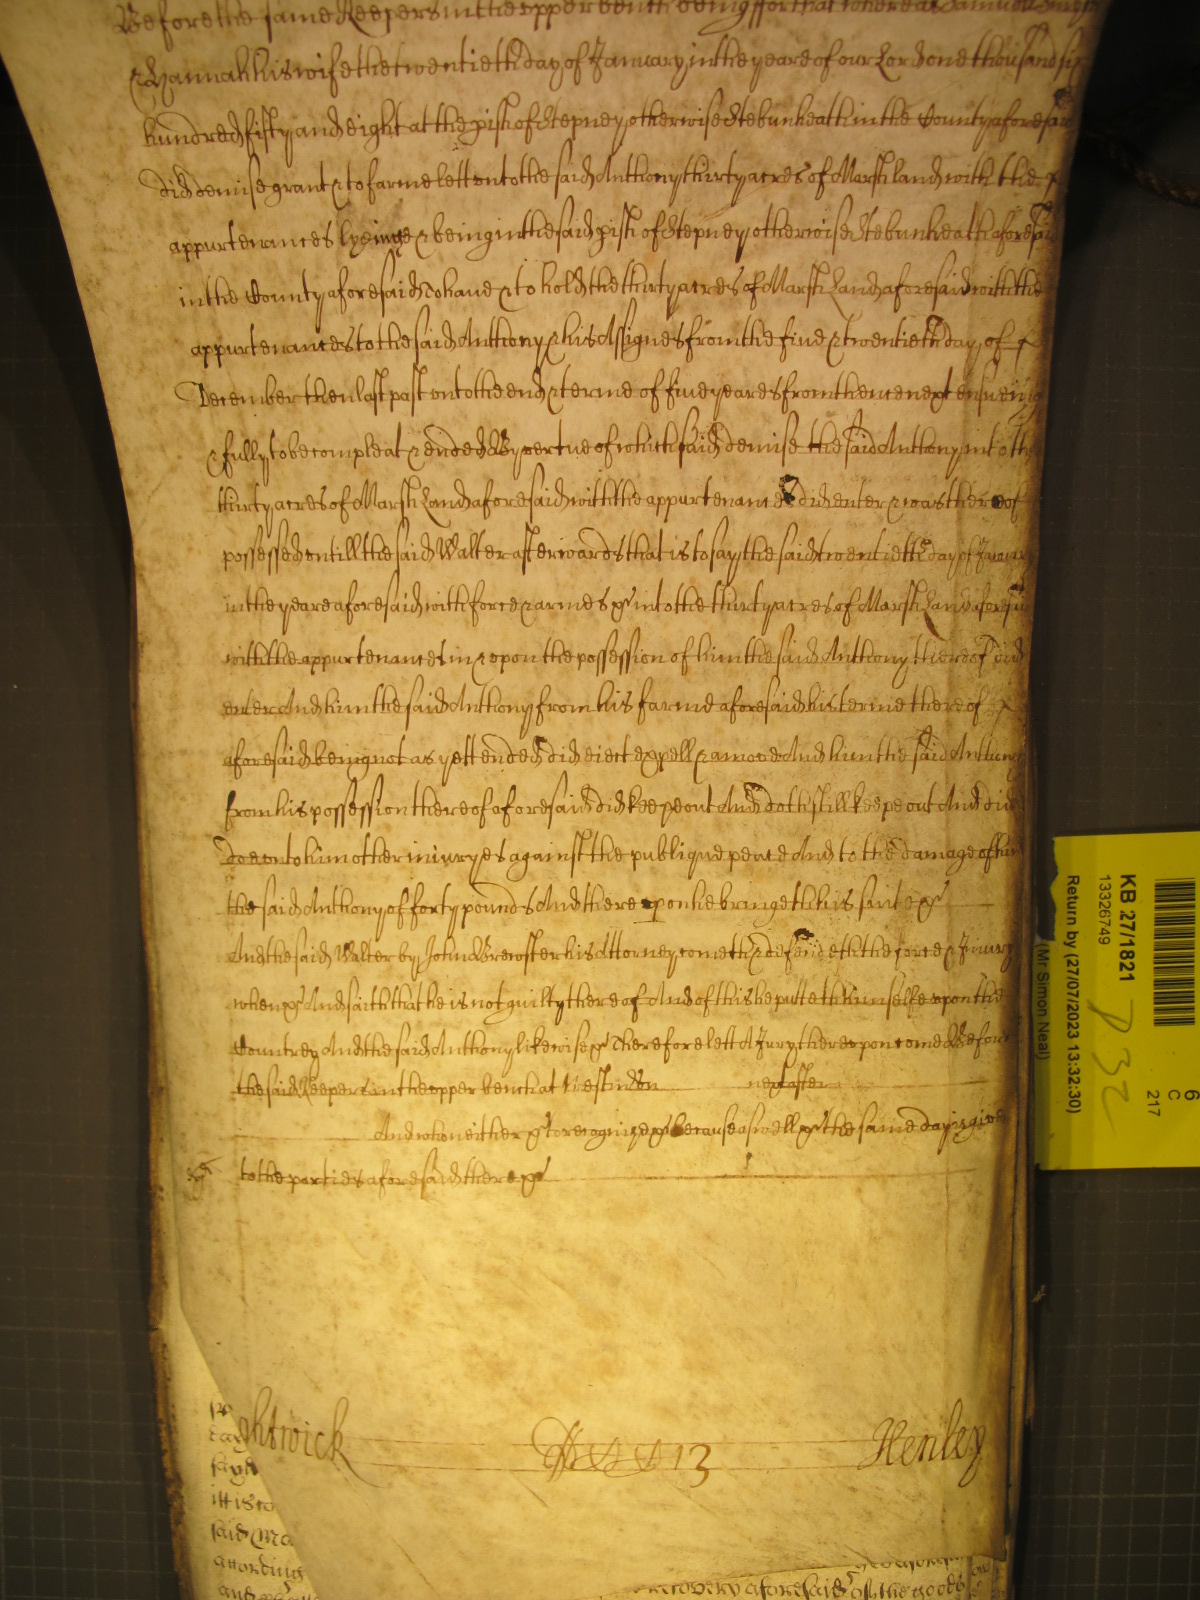 Before the same Keepers in the upper bench being ffor that whereas Samuell
& Hannah his wife the twentieth day of January in the yeare of our Lord one thousand six
hundred fifty and eight at the pish of Stepney otherwise Stebunheath in the County aforesaid
did demise grant & to farme lett unto the said Anthony thirty acres of Marsh land with the
appurtenances lyeinge & being in the said pish of Stepney otherwise Stebunheath aforesaid
in the County aforesaid To have & to hold the thirty acres of Marsh Land aforesaid with the
appurtenances to the said Anthony & his Assignes from the five & twentieth day of
December then last past unto the end & terme of five yeares from thence next ensueing
& fully to be compleat & ended By vertue of which said demise the said Anthony into the
thirty acres of Marsh Land aforesaid with the appurtenances did enter & was thereof
possessed untill the said Walter afterwards that is to say the said twentieth day of January
in the yeare aforesaid with force & armes &c into the thirty acres of Marsh Land aforesaid
with the appurtenances in & upon the possession of him the said Anthony thereof did
enter And him the said Anthony from his farme aforesaid his terme thereof
aforesaid being not as yett ended did eiect expell & amove And him the said Anthony
from his possession thereof aforesaid did keepe out And doth still keepe out And did
doe unto him other iniuryes against the publique peace And to the damage of him
the said Anthony of forty pounds And thereupon he bringeth his suite &c
And the said Walter by John Brewster his Attorney cometh & defendeth the force & Iniury
when &c And saith that he is not guilty thereof And of this he putteth himselfe upon the
Countrey And the said Anthony likewise &c Therefore lett A Jury thereupon come Before
the said Keepers in the upper bench at Westm on next after
And who neither &c to recognize &c because aswell &c the same day is given
to the parties aforesaid there &c
ghtwick 13 Henley
said
according
recovery aforesaid of the goods
KB 27/1821
13326749
Return by (27/07/2023 13:32:30)
(Mr Simon Neal)
6
C
217